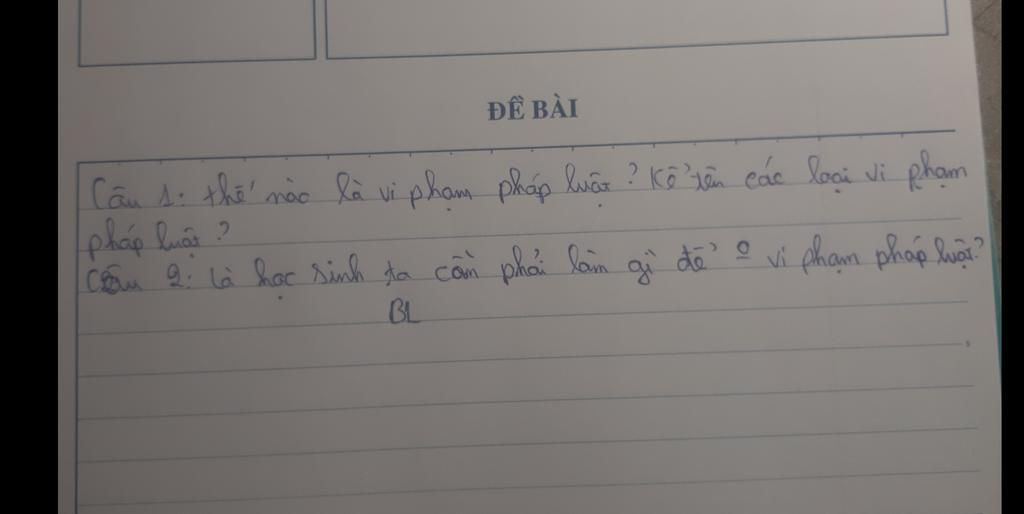 ĐỀ BÀI
Câu 1: thế nào là vi phạm pháp luật? Kể tên các loại vi phạm
pháp luật?
Câu 2: Là học sinh ta cần phải làm gì để º vi phạm pháp luật?
BL